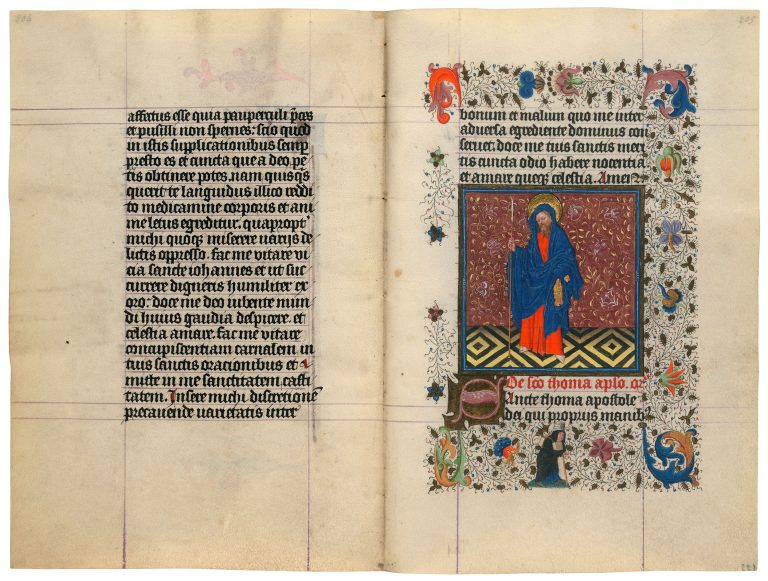 204
affatus esse quia pauperculi p̄ces
et pusilli non spernes: scio quod
in istis supplicationibus semp̲
presto es et cuncta que a deo pe
tis obtinere potes. nam quisq̄s
querit te languidus illico reddi
to medicamine corporis et ani
me letus egreditur. quapropt̄
michi quoq̄ miserere varijs de
lictis oppresso. fac me vitare vi
cia sancte iohannes et ut suc
currere digneris humiliter ex
oro: doce me deo iubente mun
di huius gaudia despicere. et
celestia amare. fac me vitare
concupiscentiam carnalem in
tuis sanctis orationibus et
mitte in me sanctitatem casti
tatem. Insere michi discretionē
precavende varietatis inter
205
bonum et malum quo me inter
adversa egrediente dominus con
servet. doce me tuis sanctis meri
tis cuncta odio habere nocentia
et amare queq̄ celestia. Amen
De sc̄o thoma aplo. or̄
Sancte thoma apostole
dei qui proprijs manib⁹